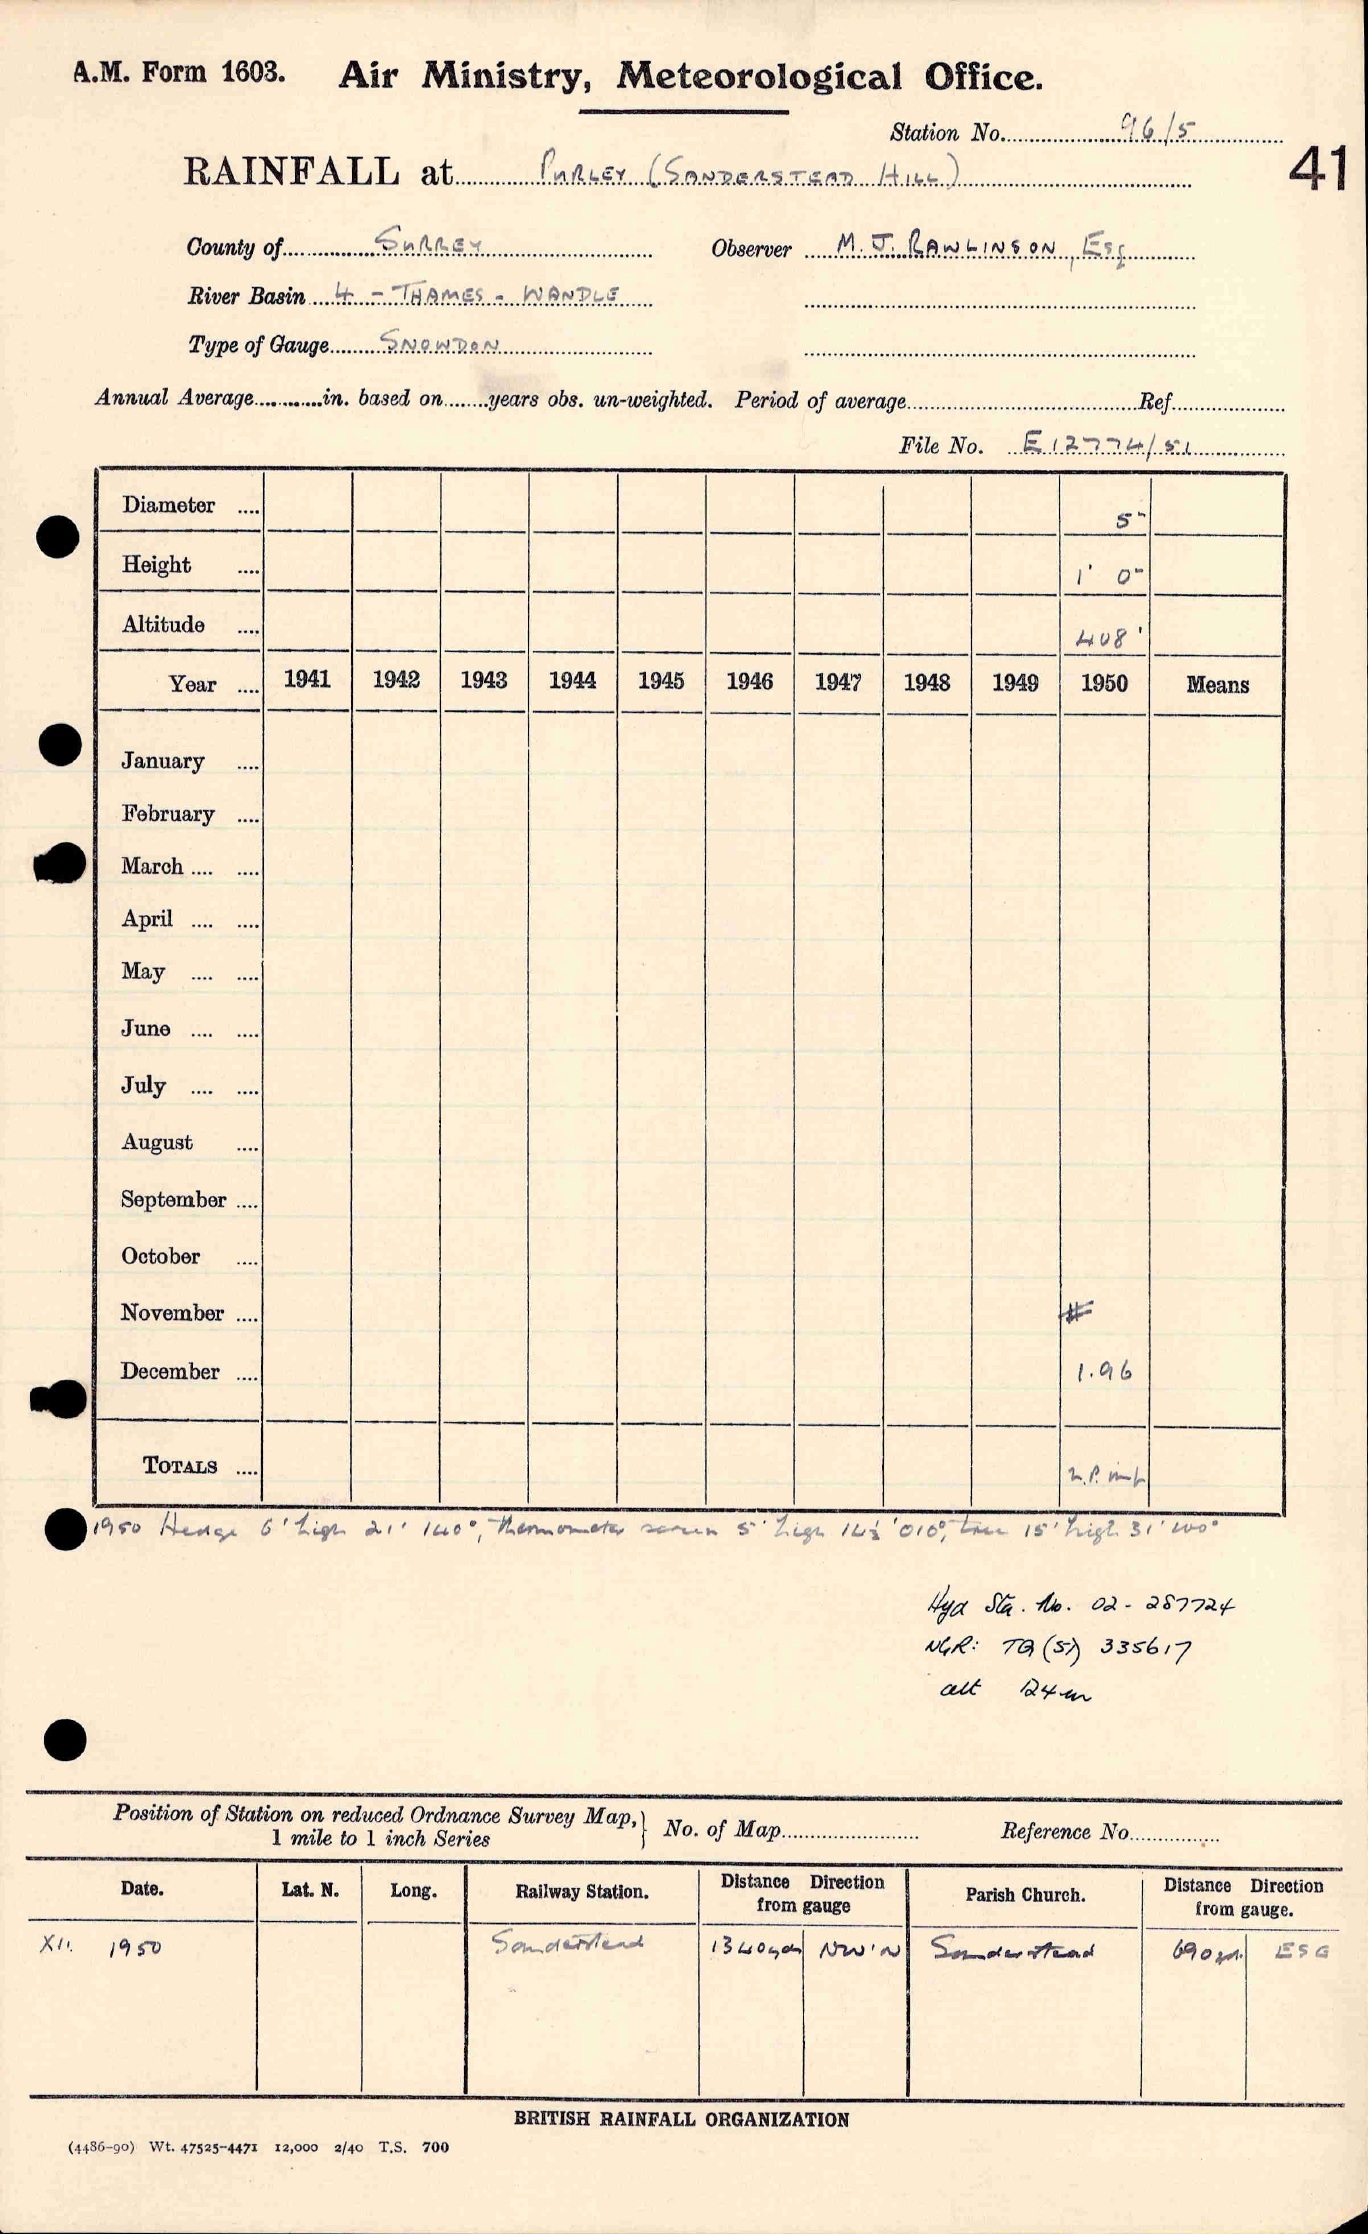 A.M. Form 1603. Air Ministry, Meteorological Office.
Station No. 96/5
41
RAINFALL at PURLEY (SANDERSTEAD HILL)
County of SURREY Observer M. J. RAWLINSON, Esq
River Basin 4 - THAMES - WANDLE
Type of Gauge SNOWDON
Annual Average............in. based on........years obs. un-weighted. Period of average.......... Ref..........
File No. E12774/51
Diameter .... 5"
Height .... 1' 0"
Altitude .... 408'
Year .... 1941 1942 1943 1944 1945 1946 1947 1948 1949 1950 Means
January ....
February ....
March .... ....
April .... ....
May .... ....
June .... ....
July .... ....
August ....
September ....
October ....
November .... #
December .... 1.96
TOTALS ....
1950 Hedge 6' high 21' 140°, thermometer screen 5' high 14½' 010°, tree 15' high 31'
Hyd Sta. No. 02 - 287724
NGR: TQ (51) 335617
alt 124m
Position of Station on reduced Ordnance Survey Map, } No. of Map.......... Reference No..........
1 mile to 1 inch Series
Date. Lat. N. Long. Railway Station. Distance Direction from gauge Parish Church. Distance Direction from gauge.
XII. 1950 Sanderstead 1340yds NW'N Sanderstead 690yd. ESE
BRITISH RAINFALL ORGANIZATION
(4486-90) Wt. 47525-4471 12,000 2/40 T.S. 700